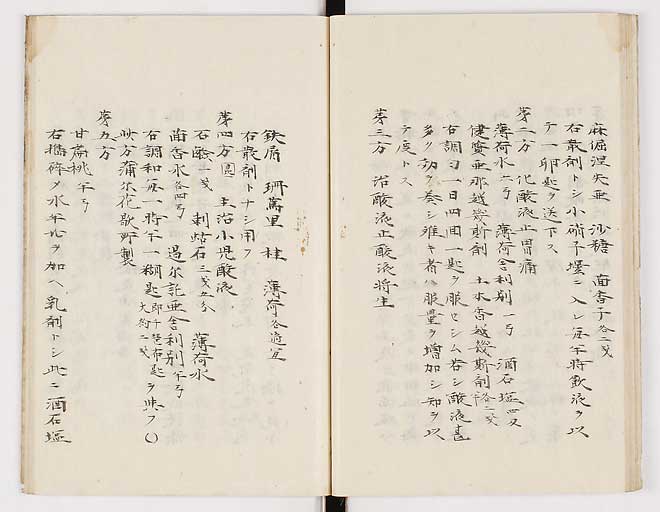 麻倔涅失亜 沙糖 茴香子各二戔
右散剤トシ小硝子壜ニ入レ毎午時飲液ヲ以
テ一卵匙ヲ送下ス
第二方 治酸液止胃痛
薄荷水六弓 薄荷舎利別一弓 酒石塩四又
健質亜那越幾斯剤 土木香越幾斯剤各二戔
右調匀一日四回一匙ヲ服セシム若シ酸液甚
多ク劫ヲ奏シ難キ者ハ服量ヲ増加シ知ヲ以
テ度トス
第三方 治酸液止酸液将生
鉄屑 珊蔼里 桂 薄荷各適宜
右散剤トナシ用フ
第四方 主治小児酸液
石鹸一戔 刺蛄石三戔五分 薄荷水
茴香水各四弓 舎利別半弓
右調和毎一時半一糊匙ヲ与フ
此方蒲尓花歇野製
第五方
甘扁桃半弓
右擣砕メ水半ヲ加ヘ乳剤トシ此ニ酒石塩